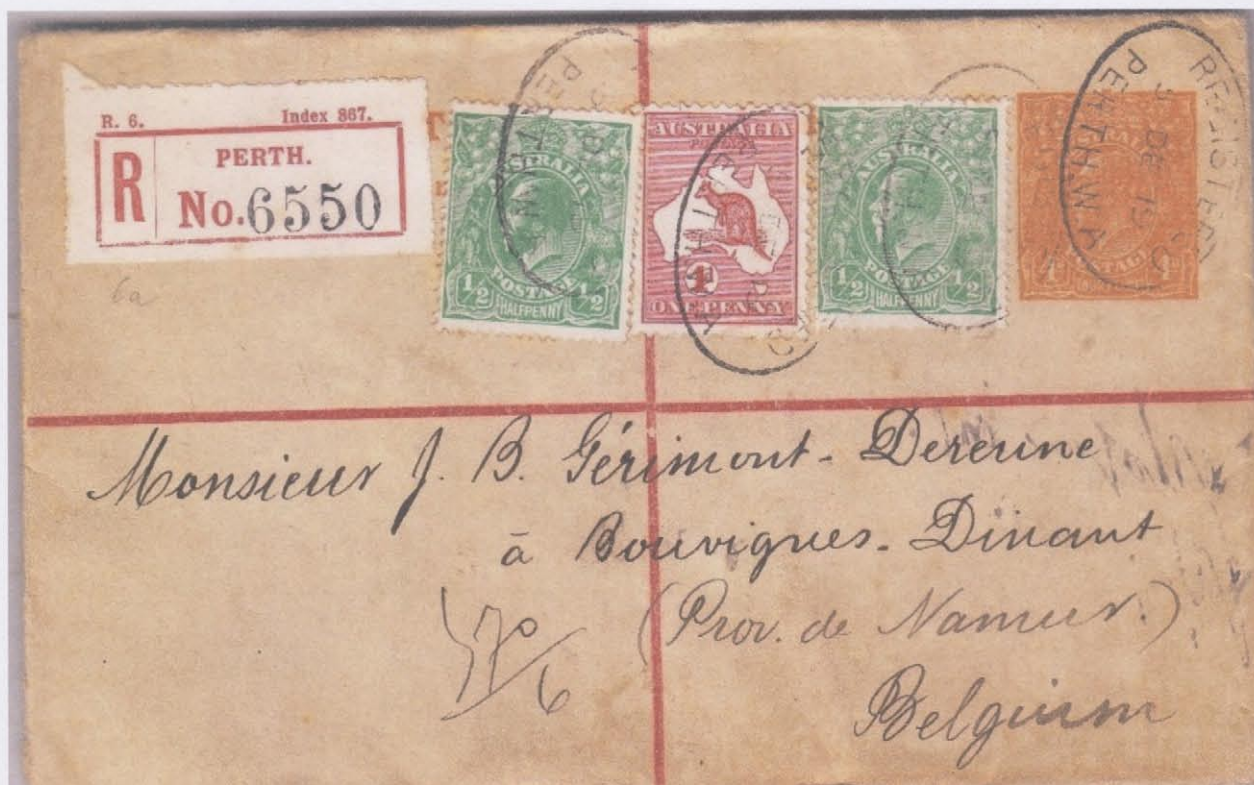 R. 6. Index 867.
R
PERTH.
No. 6550
6a
AUSTRALIA
POSTAGE
½ HALFPENNY ½
AUSTRALIA
POSTAGE
1
ONE PENNY
AUSTRALIA
POSTAGE
½ HALFPENNY ½
POSTAGE
REGISTERED
PERTH
Monsieur J. B. Gérimont-Dereine
à Bouvignes-Dinant
(Prov. de Namur.)
Belguim
570/6